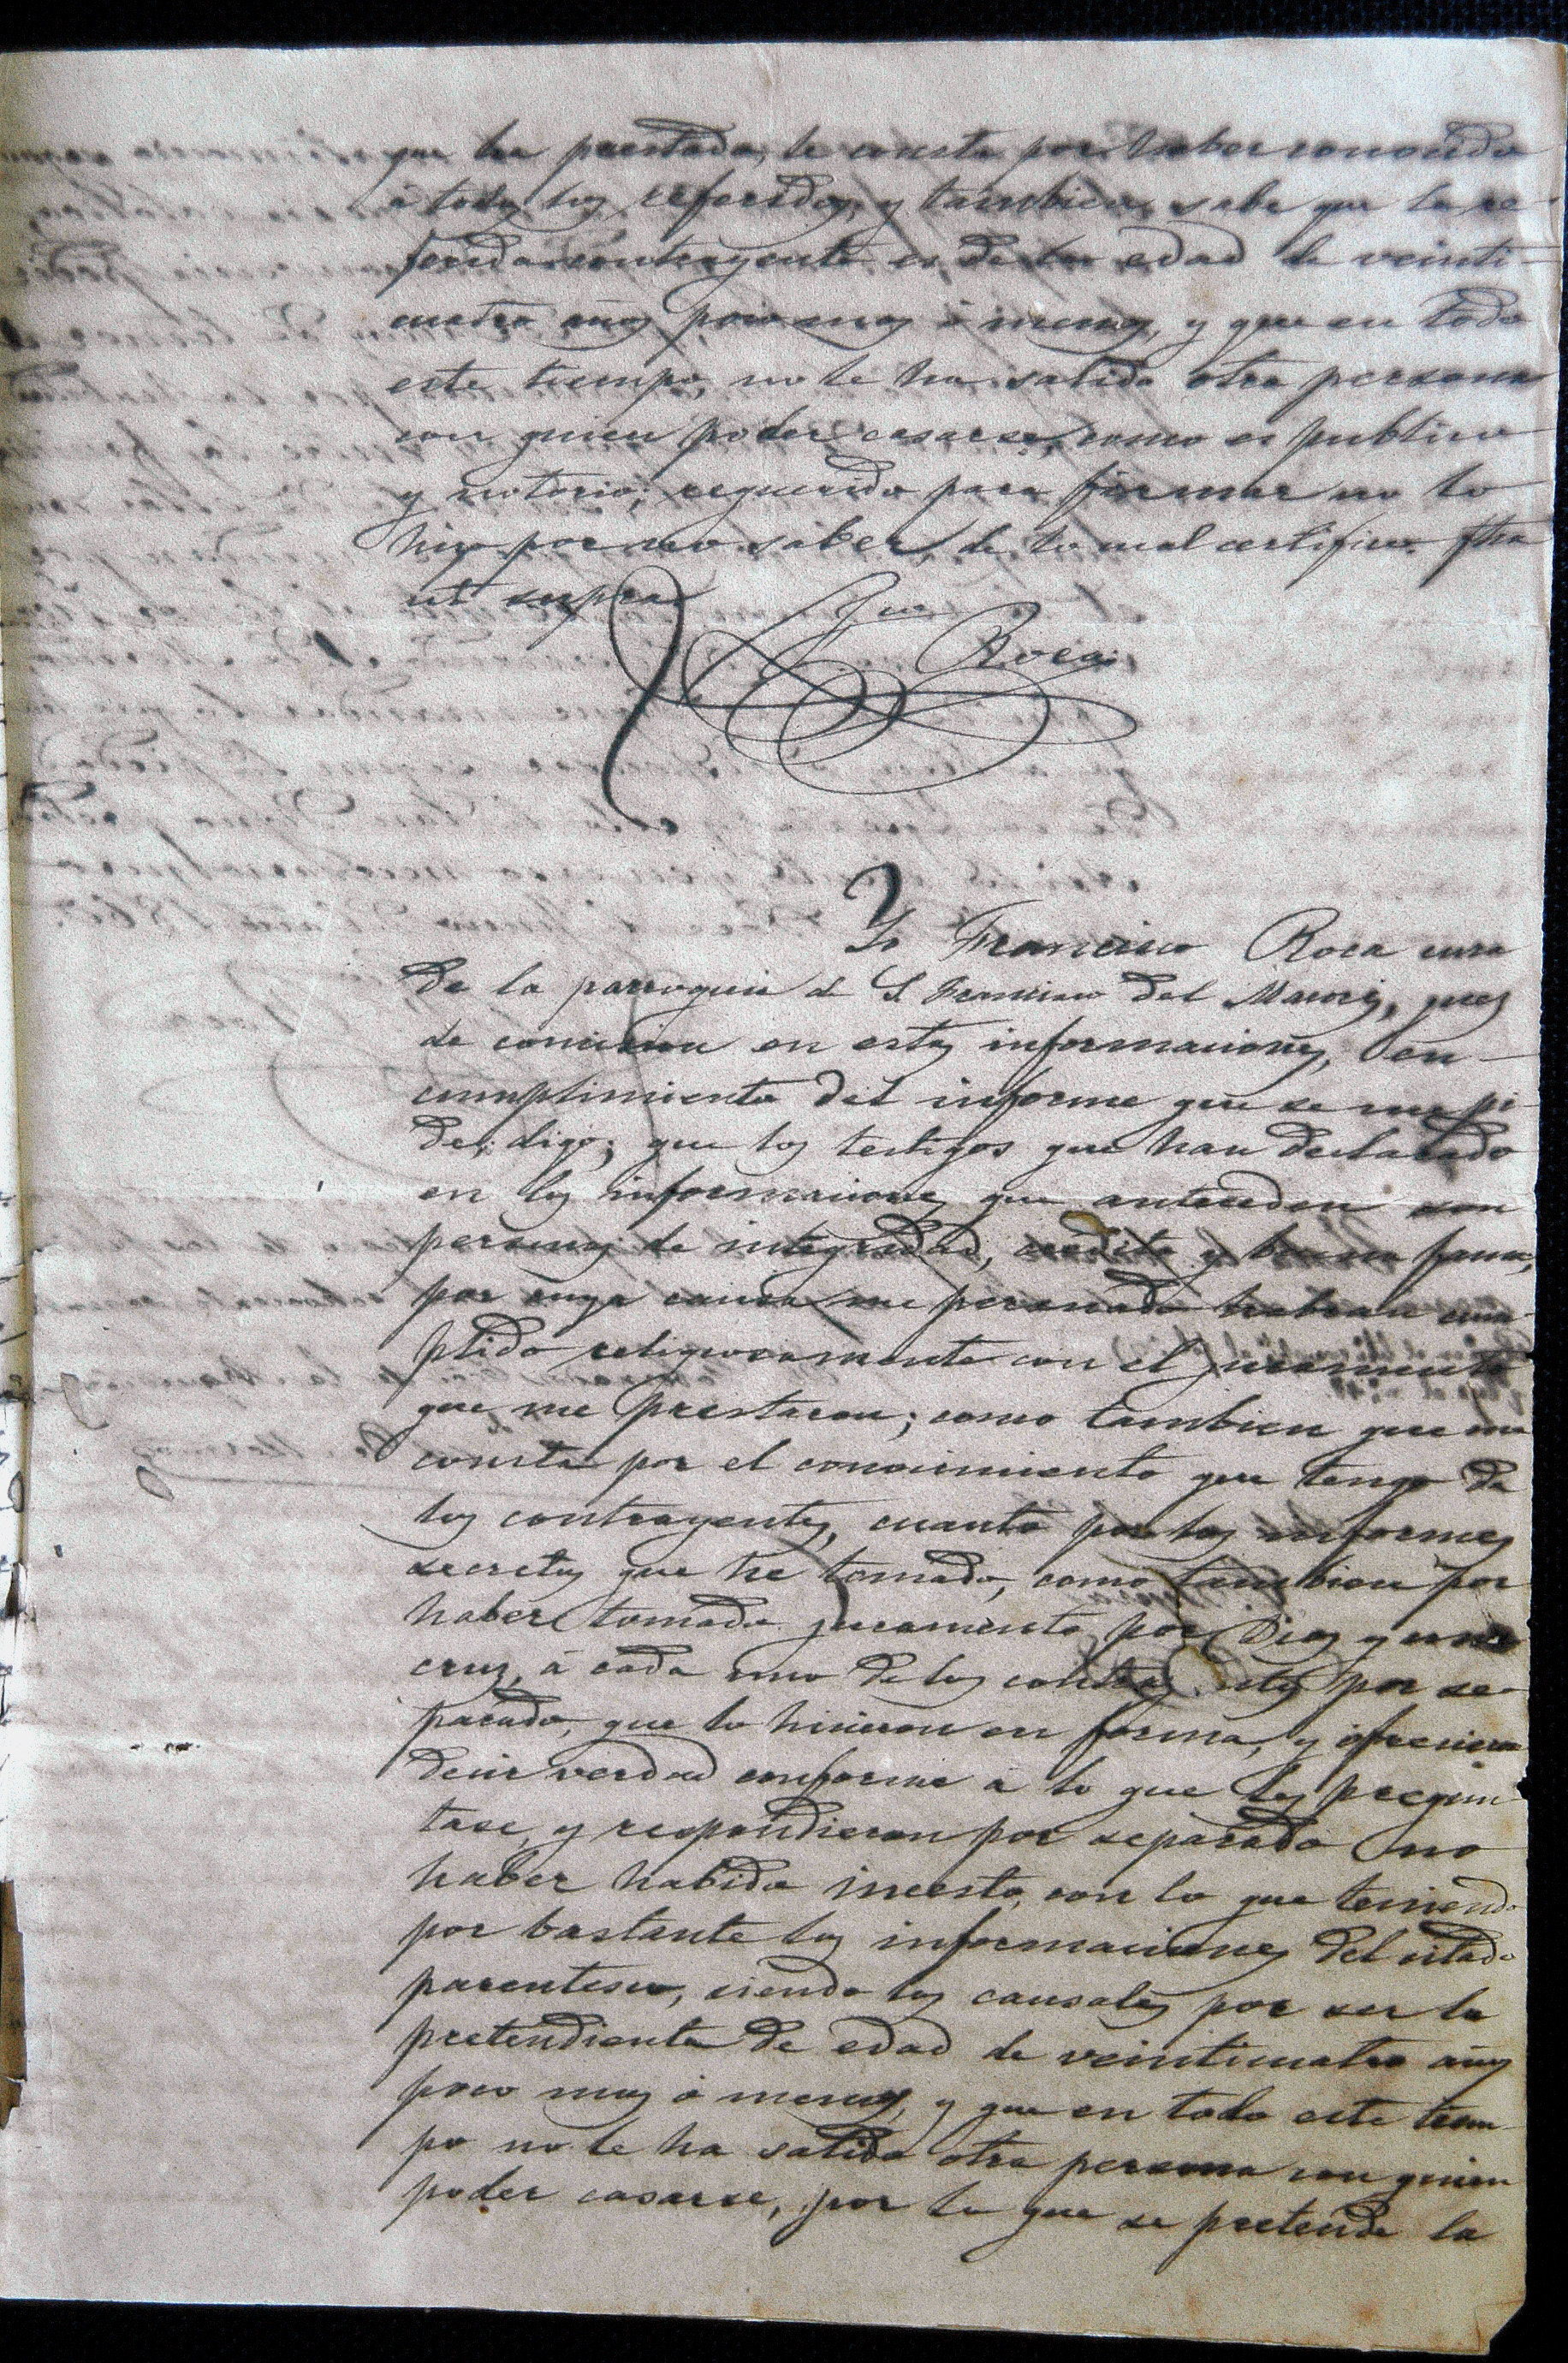 que ha prestado, le consta por haber conocido
á todos los referidos, y tambien sabe que la re-
ferida contrayente es de la edad de veinti-
cuatro años poco mas ó menos, y que en todo
este tiempo, no le ha salido otra persona
con quien poder casarse, como es publico
y notorio; requerido para firmar no lo
hizo por no saber, de lo cual certifico fha
ut supra
Fco
Roca
Yo Francisco Roca cura
de la parroquia de S. Francisco del Macoris, juez
de comision en estas informaciones, en
cumplimiento del informe que se me pi-
de; digo; que los testigos que han declarado
en las informaciones que anteceden son
personas de integridad, credito y buena fama,
por cuya causa me persuado habran cum-
plido religiosamente con el juramento
que me prestaron; como tambien que me
consta por el conocimiento que tengo de
los contrayentes, cuanto por los informes
secretos que he tomado, como tambien por
haber tomado juramento por Dios y una
cruz, á cada uno de los contrayentes por se-
parado, que lo hicieron en forma, y ofrecieron
decir verdad conforme á lo que les pregun-
tase, y respondieron por separado no
haber habido incesto, con lo que teniendo
por bastante las informaciones del citado
parentesco, siendo las causales por ser la
pretendienta de edad de veinticuatro años
poco mas ó menos, y que en todo este tiem-
po no le ha salido otra persona con quien
poder casarse, por lo que se pretende la